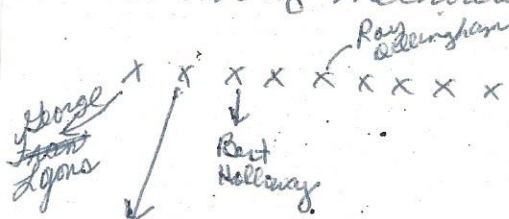 Roy
Dillingham
x x x x x x x x x
George
Lyons
Bert
Holloway